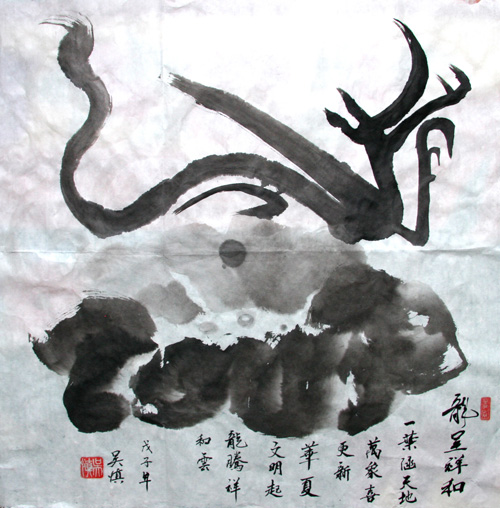 龍呈祥和
一葉涵天地
萬象喜
更新
華夏
文明起
龍騰祥
和雲
戊子年
吴慎